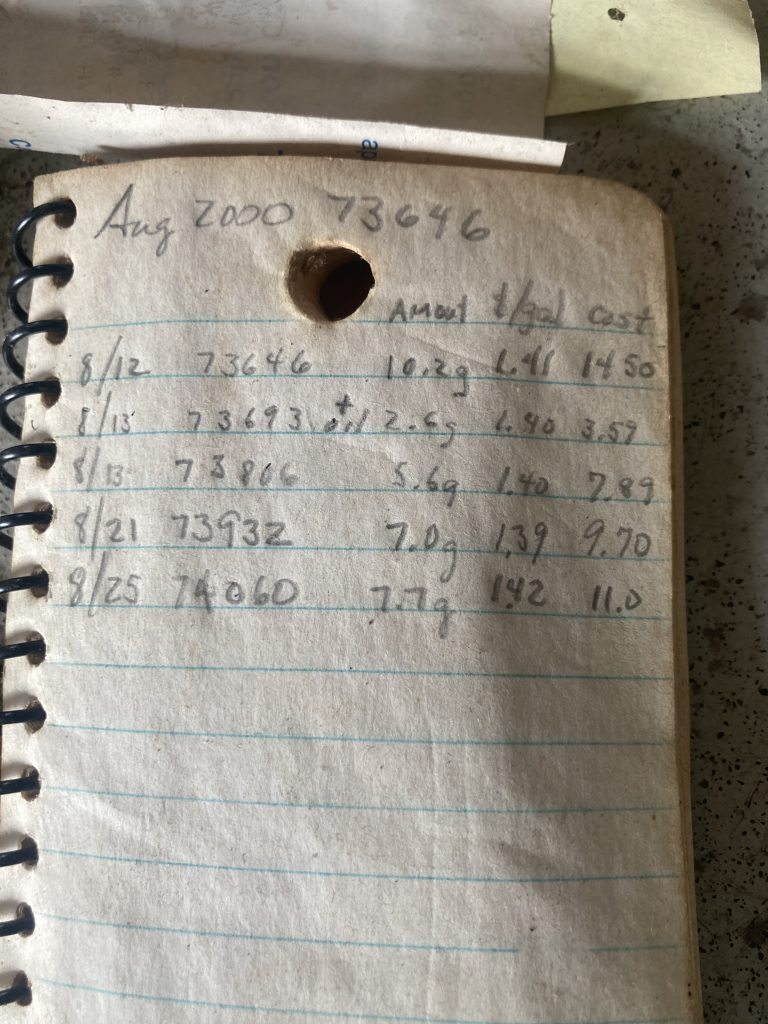 Aug 2000 73646
Amout $/gal cost
8/12 73646 10.2g 1.41 14.50
8/13 73693 + oil 2.6g 1.40 3.59
8/13 73806 5.6g 1.40 7.89
8/21 73932 7.0g 1.39 9.70
8/25 74060 7.7g 1.42 11.0